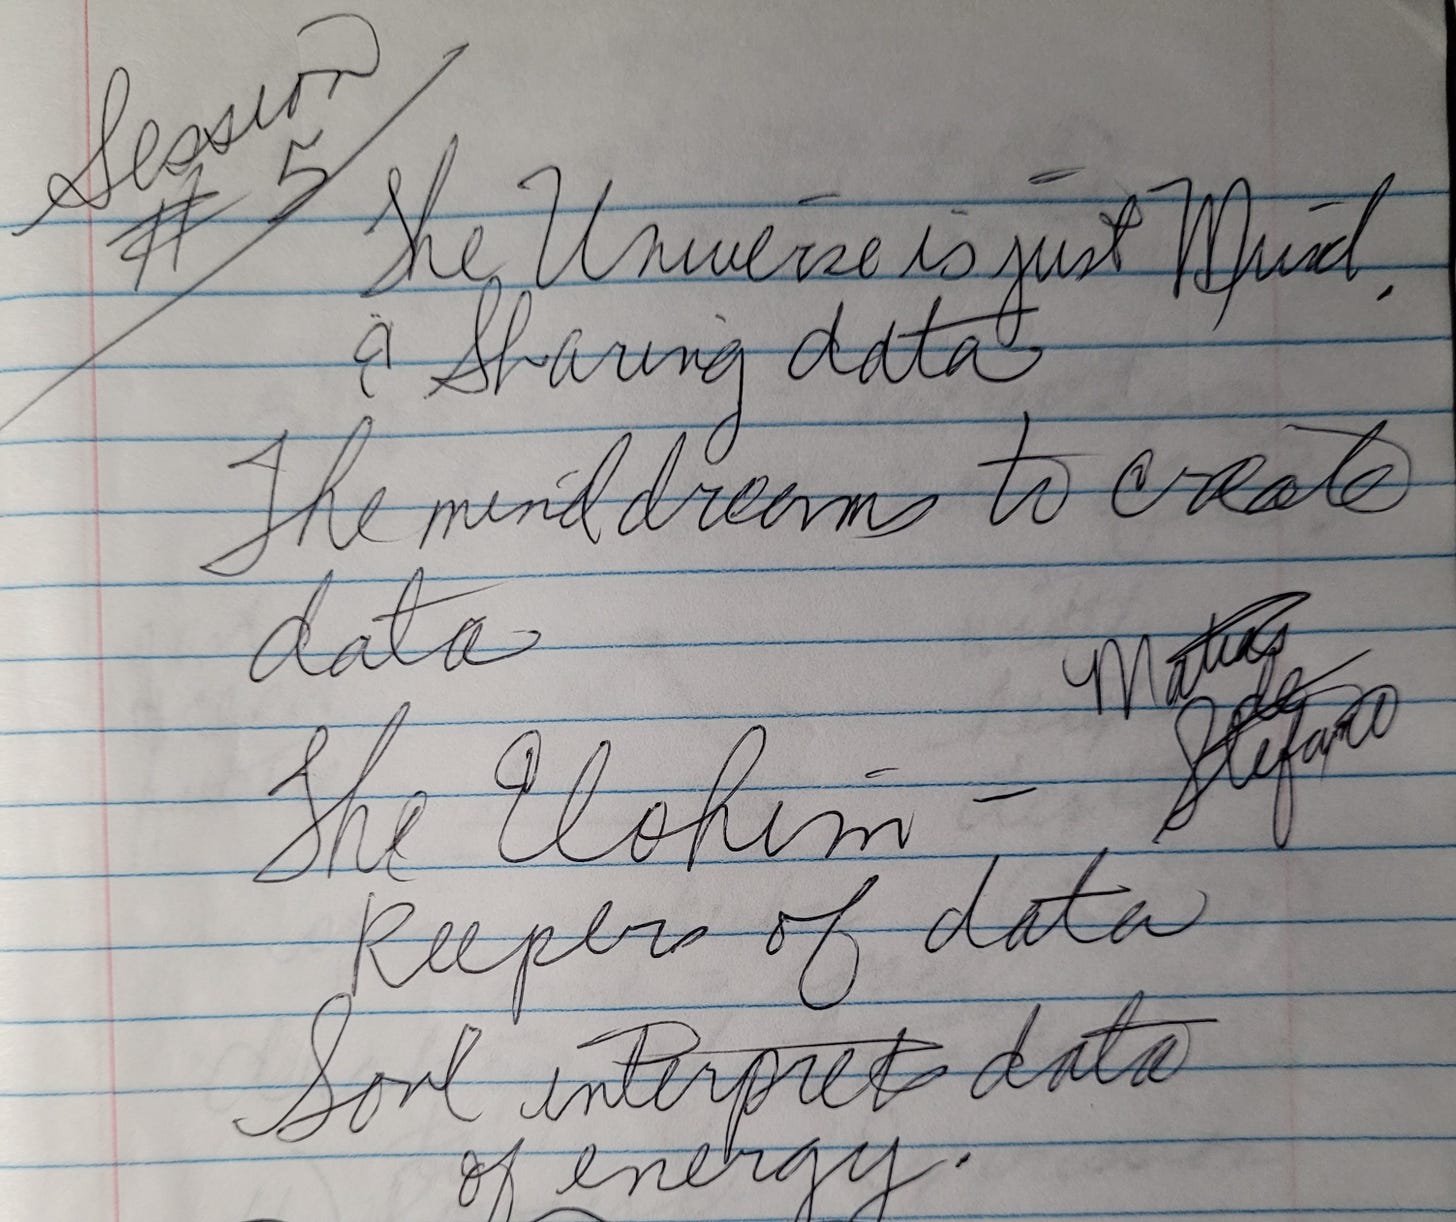 Session
# 5
The Universe is just Mind,
& Sharing data
The mind dreams to create
data
Matias
de
Stefano
The Elohim –
Keepers of data
Soul interprets data
of energy.